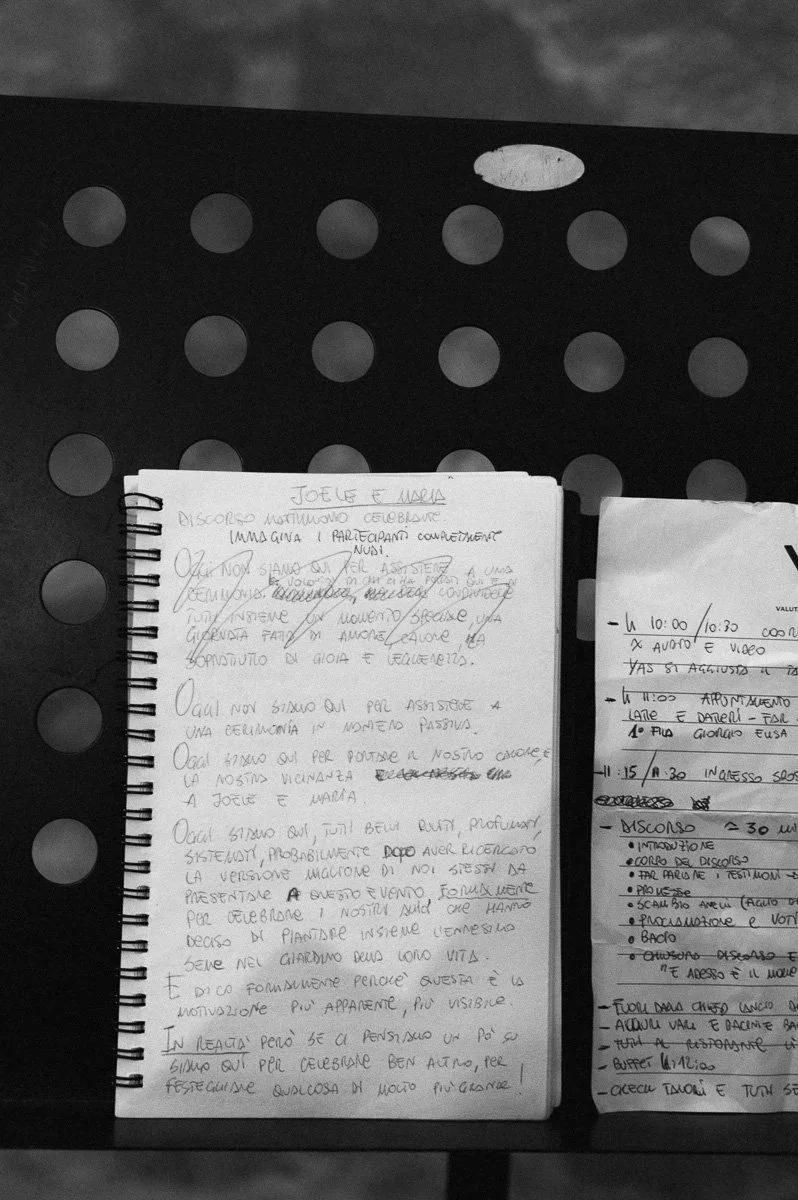 JOELE E MARIA
DISCORSO MATRIMONIO CELEBRANTE.
IMMAGINA I PARTECIPANTI COMPLETAMENTE
NUDI.
OGGI NON SIAMO QUI PER ASSISTERE A UNA
CERIMONIA CONDIVIDERE
TUTTI INSIEME UN MOMENTO SPECIALE, UNA
GIORNATA FATTA DI AMORE, CALORE, MA
SOPRATTUTTO DI GIOIA E LEGGEREZZA.
OGGI NON SIAMO QUI PER ASSISTERE A
UNA CERIMONIA IN MANIERA PASSIVA.
OGGI SIAMO QUI PER PORTARE IL NOSTRO CALORE, E
LA NOSTRA VICINANZA
A JOELE E MARIA
OGGI SIAMO QUI, TUTTI BELLI PULITI, PROFUMATI,
SISTEMATI, PROBABILMENTE DOPO AVER RICERCATO
LA VERSIONE MIGLIORE DI NOI STESSI DA
PRESENTARE A QUESTO EVENTO FORMALMENTE
PER CELEBRARE I NOSTRI CHE HANNO
DECISO DI PIANTARE INSIEME L'ENNESIMO
SEME NEL GIARDINO DELLA LORO VITA.
E DICO FORMALMENTE PERCHÈ QUESTA È LA
MOTIVAZIONE PIÙ APPARENTE, PIÙ VISIBILE.
IN REALTÀ PERÒ SE CI PENSIAMO UN PÒ SU
SIAMO QUI PER CELEBRARE BEN ALTRO, PER
FESTEGGIARE QUALCOSA DI MOLTO PIÙ GRANDE!
VALUT
- h 10:00 / 10:30 COOR
X AUDIO E VIDEO
YAS SI AGGIUSTA IL TA
- h 11:00 APPUNTAMENTO
E - FAR
1° FILA GIORGIO ELISA
- 11:15 / 11:30 INGRESSO SPOS
- DISCORSO ≃ 30 MI
• INTRODUZIONE
• CORPO DEL DISCORSO
• FAR PARLARE I TESTIMONI
• PROMESSE
• SCAMBIO ANELLI
• PROCLAMAZIONE E VOTI
• BACIO
• CHIUSURA DISCORSO E
"E ADESSO È IL MOME
- FUORI DALLA CHIESA LANCIO
- AUGURI VARI E BACINI E BA
- TUTTI AL RISTORANTE
- BUFFET
- CHECK TAVOLI E TUTTI SE